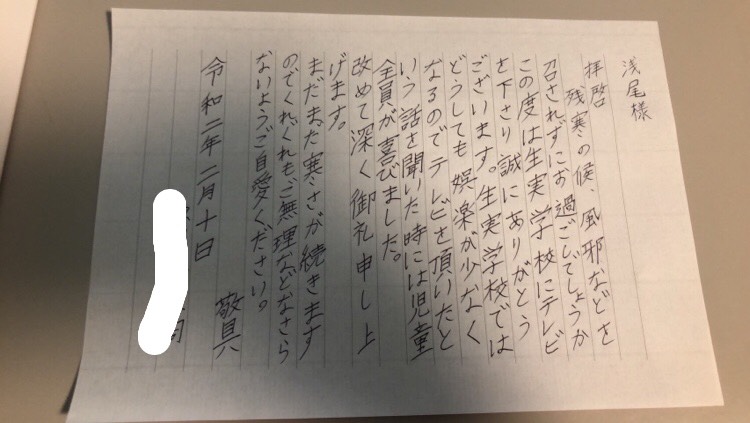 浅尾様
拝啓
残寒の候、風邪などを
召されずにお過ごしでしょうか
この度は生実学校にテレビ
を下さり誠にありがとう
ございます。生実学校では
どうしても娯楽が少なく
なるのでテレビを頂いたと
いう話を聞いた時には児童
全員が喜びました。
改めて深く御礼申し上
げます。
まだまだ寒さが続きます
のでくれぐれもご無理などなさら
ないようご自愛ください。
敬具
令和二年二月十日